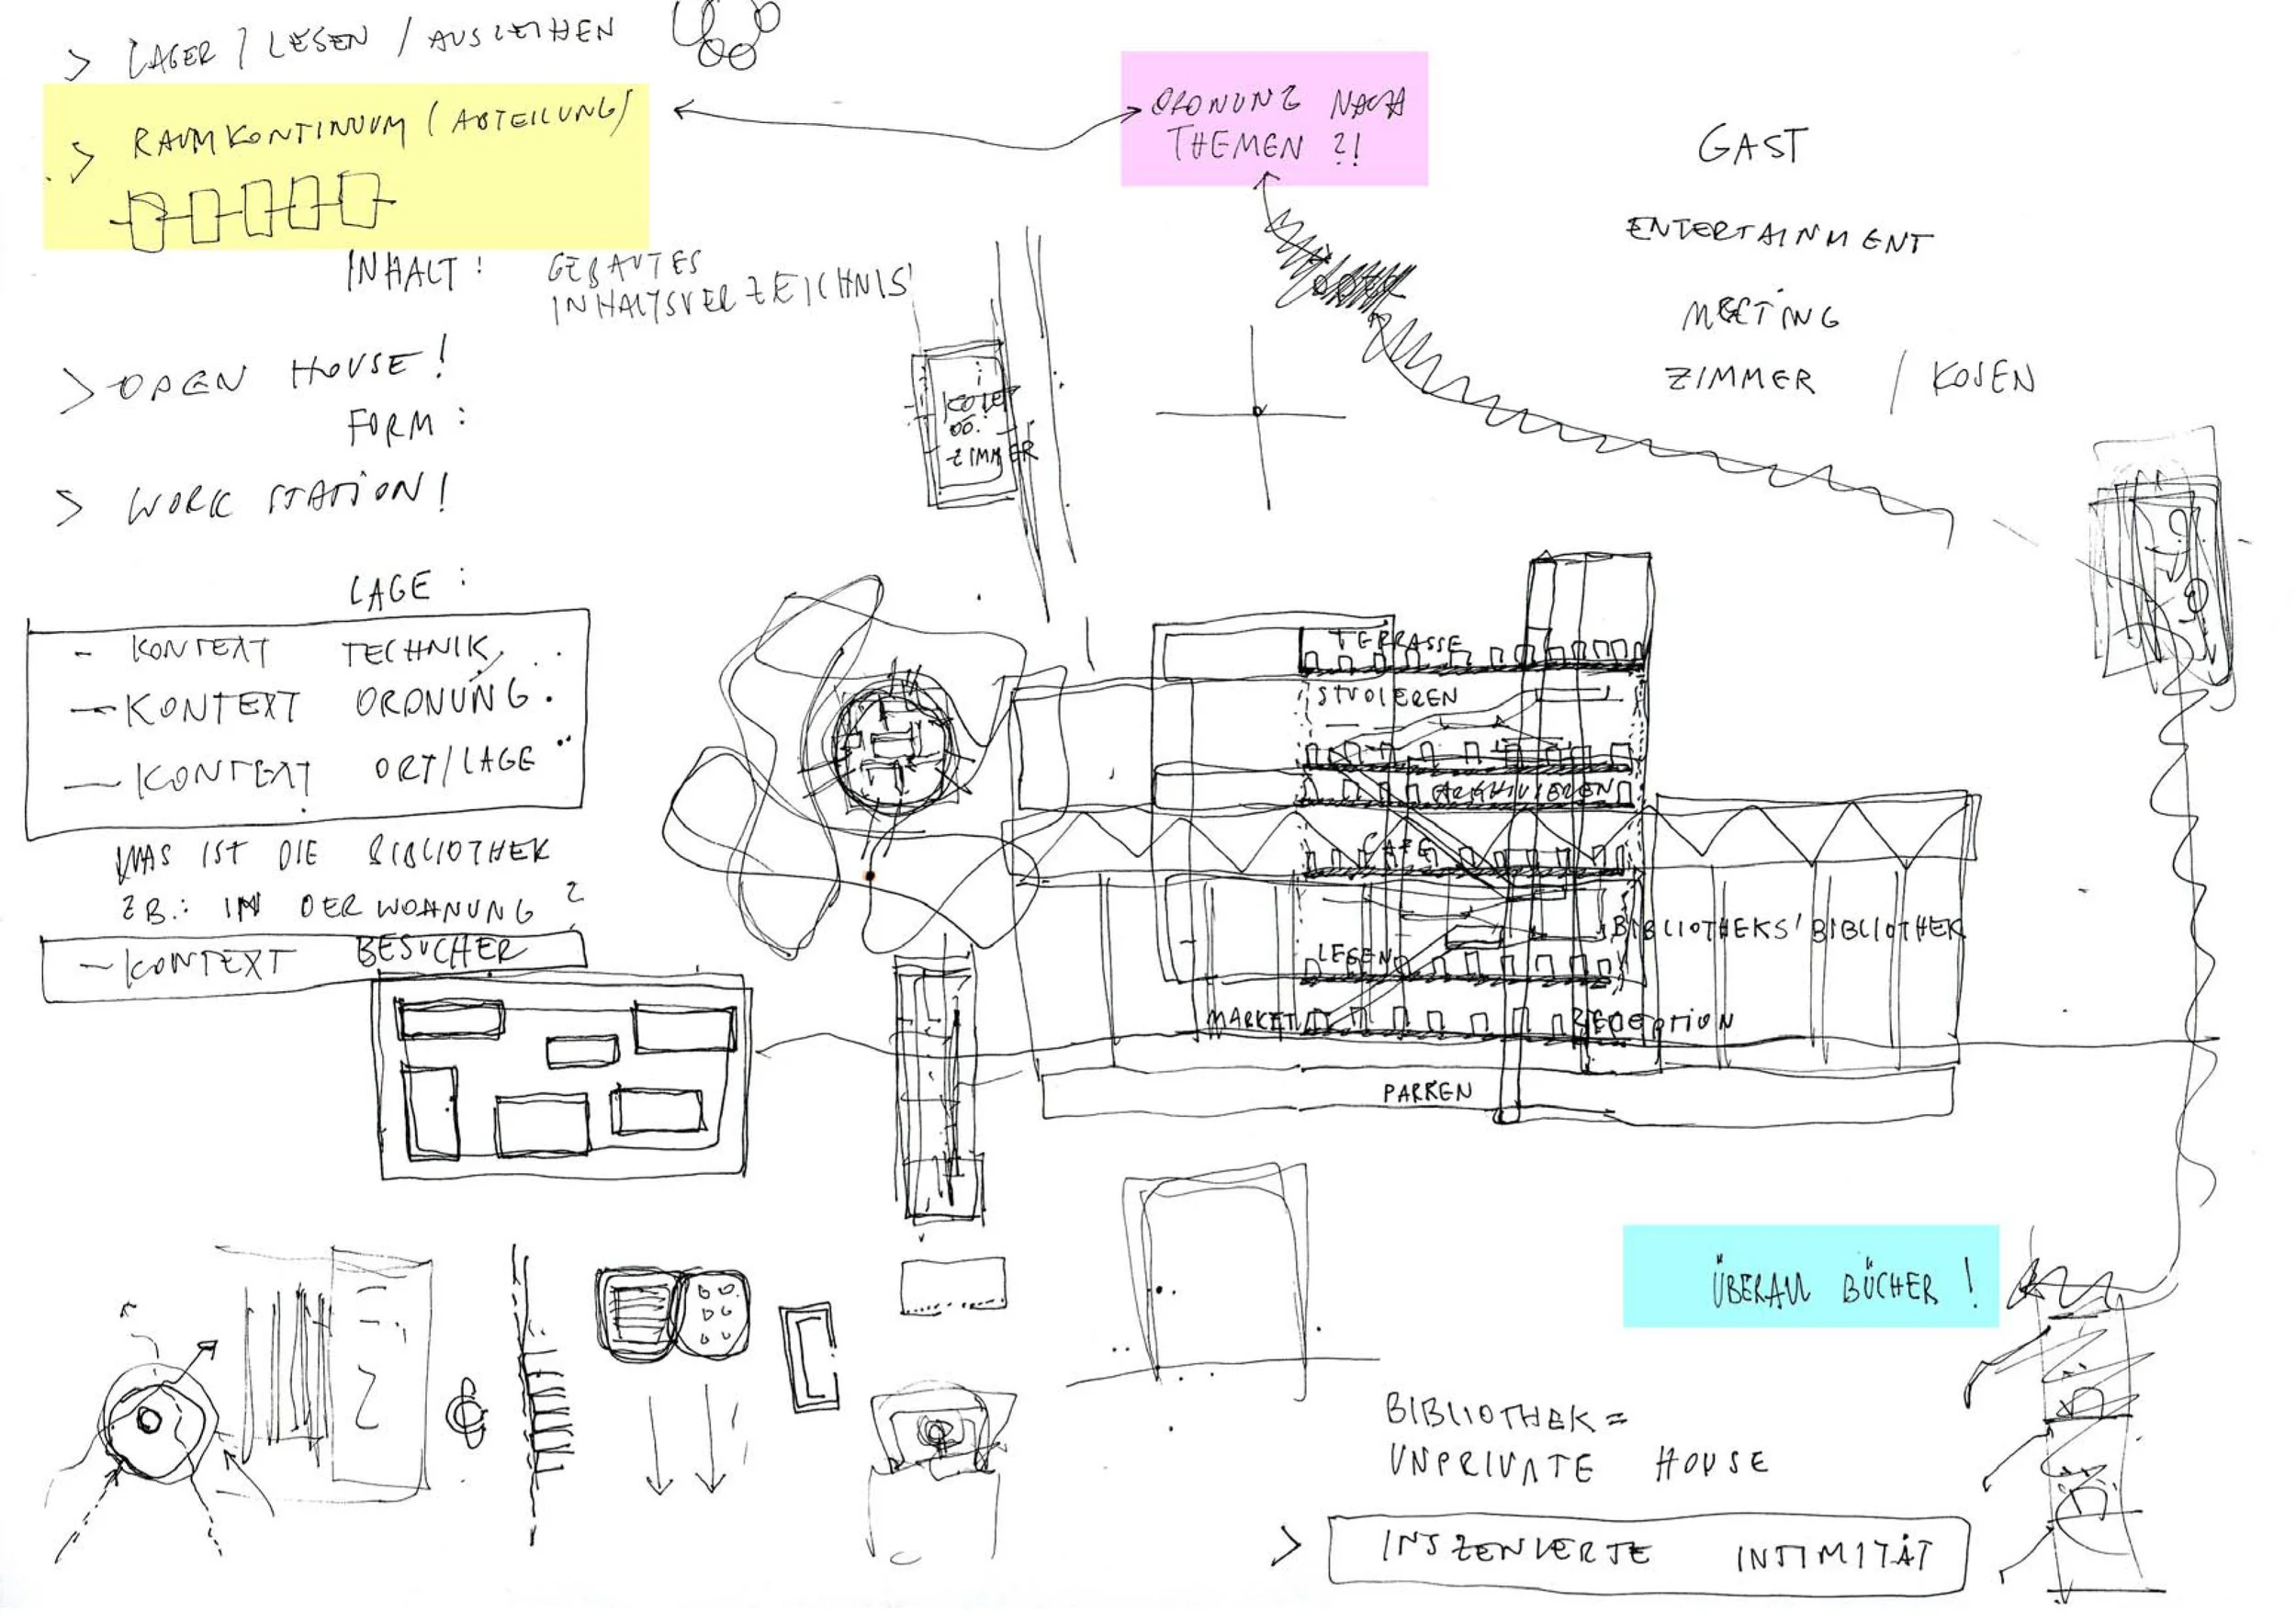 > LAGER / LESEN / AUSLEIHEN
> RAUMKONTINUUM (ABTEILUNG)
ORDNUNG NACH
THEMEN ?!
GAST
ENTERTAINMENT
MEETING
ZIMMER / KOJEN
INHALT : GEBAUTES
INHALTSVERZEICHNIS
> OPEN HOUSE !
FORM :
> WORK STATION !
KOJE
OD.
ZIMMER
LAGE :
- KONTEXT TECHNIK
- KONTEXT ORDNUNG
- KONTEXT ORT/LAGE
WAS IST DIE BIBLIOTHEK
ZB.: IN DER WOHNUNG ?
- KONTEXT BESUCHER
TERRASSE
STUDIEREN
ARCHIVIEREN
CAFE
BIBLIOTHEKS'BIBLIOTHEK
LESEN
MARKET
RECEPTION
PARKEN
ÜBERALL BÜCHER !
BIBLIOTHEK =
UNPRIVATE HOUSE
> INSZENIERTE INTIMITÄT